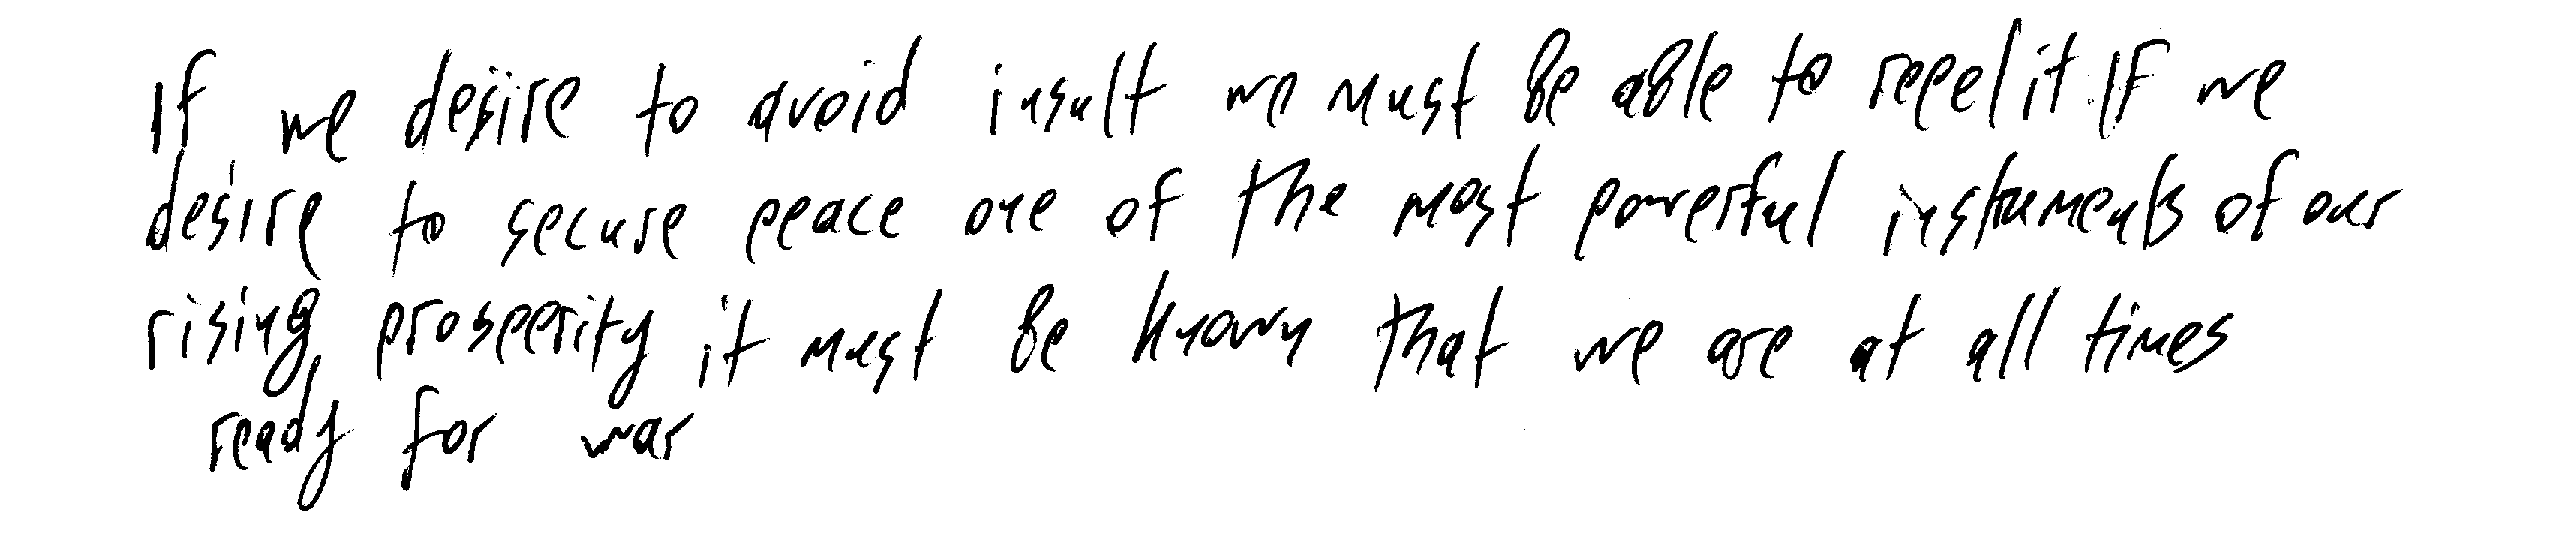 If we desire to avoid insult we must be able to repel it If we
desire to secure peace one of the most powerful instruments of our
rising prosperity it must be known that we are at all times
ready for war